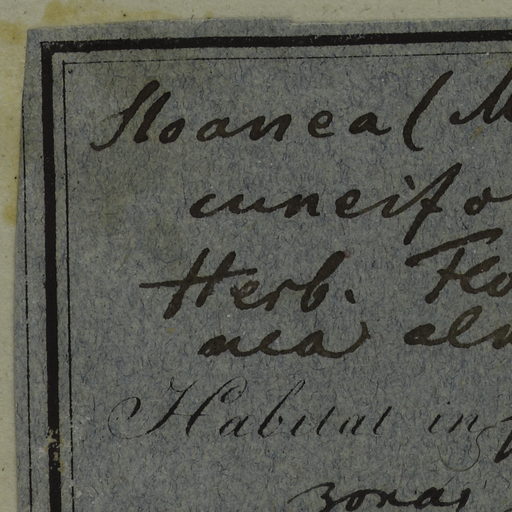 Sloanea (M
cuneifo
Herb. Flo
nea
Habitat in
zonas